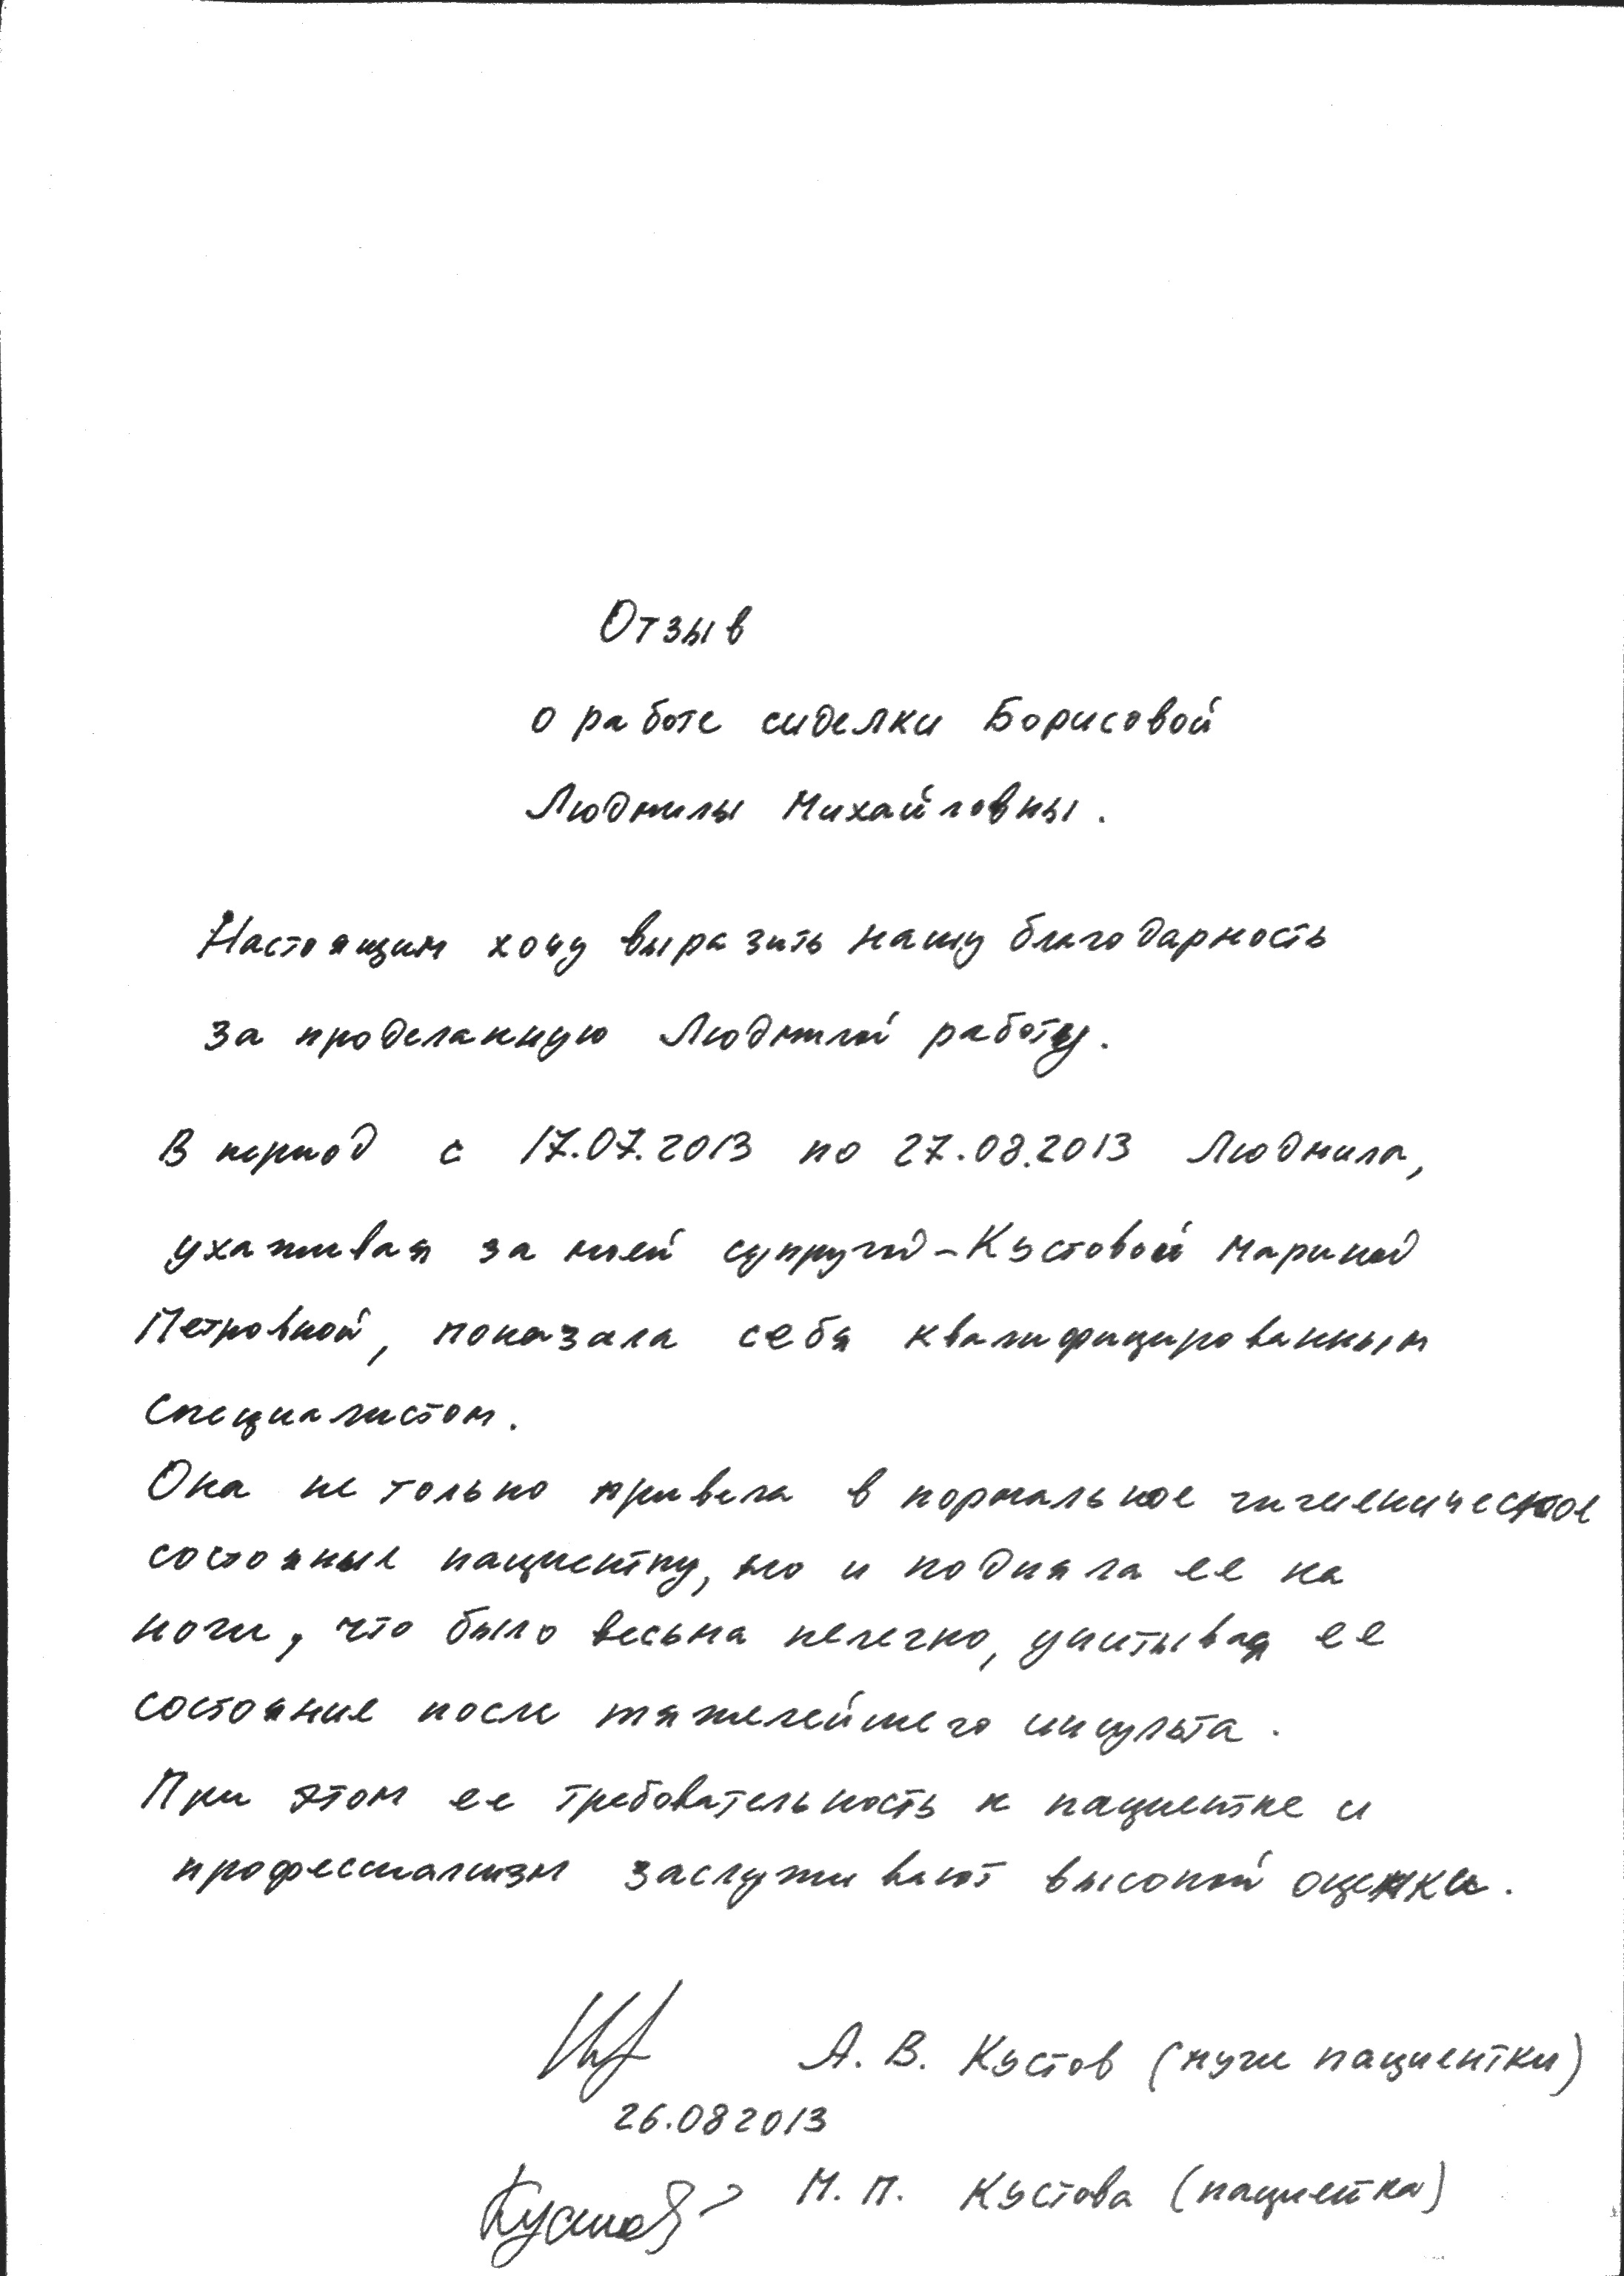 Отзыв
о работе сиделки Борисовой
Людмилы Михайловны.
Настоящим хочу выразить нашу благодарность
за проделанную Людмилой работу.
В период с 17.07.2013 по 27.08.2013 Людмила,
ухаживая за моей супругой - Кустовой Мариной
Петровной, показала себя квалифицированным
специалистом.
Она не только привела в нормальное гигиеническое
состояние пациентку, но и подняла ее на
ноги, что было весьма нелегко, учитывая ее
состояние после тяжелейшего инсульта.
При этом ее требовательность к пациентке и
профессиализм заслуживают высокой оценки.
А. В. Кустов (муж пациентки)
26.08 2013
Кустов
М. П. Кустова (пациентка)